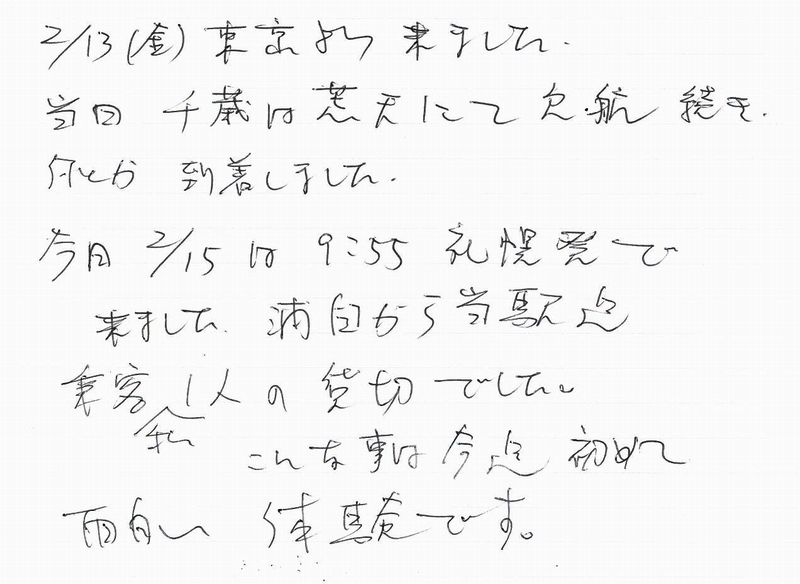 2/13(金) 東京より 来ました.
当日 千歳は荒天にて 欠航 続き.
何とか 到着しました.
今日 2/15 は 9:55 札幌発で
来ました. 浦臼から当駅迄
乗客 1人の 貸切でした。
私
こんな事は 今迄 初めて
面白い 体験です。